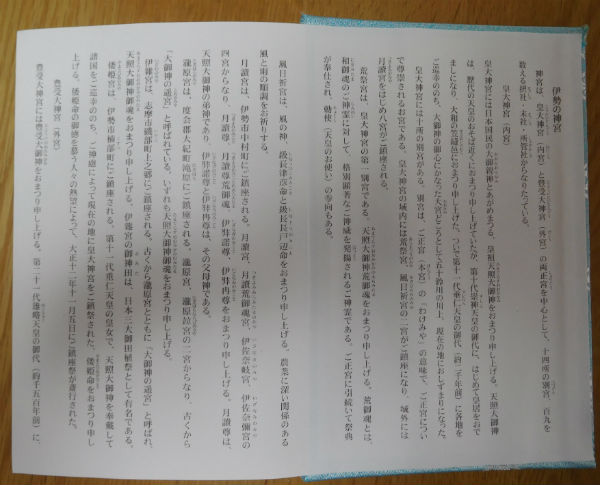 伊勢の神宮
神宮は、皇大神宮（内宮）と豊受大神宮（外宮）の両正宮を中心として、十四所の別宮、百九を
数える摂社、末社、所管社からなりたっている。
皇大神宮（内宮）
皇大神宮には日本国民の大御祖神とあがめまつる、皇祖天照大御神をおまつり申し上げる。天照大御神
は、歴代の天皇のおそば近くにおまつり申し上げていたが、第十代崇神天皇の御代に、はじめて皇居をおで
ましになり、大和の笠縫邑におまつり申し上げた。ついで第十一代垂仁天皇の御代（約二千年前）に各地を
ご巡幸ののち、大御神の御心にかなった大宮どころとして五十鈴の川上、現在の地におしずまりになった。
皇大神宮には十所の別宮がある。別宮は、ご正宮（本宮）の「わけみや」の意味で、ご正宮につい
で尊崇されるお宮である。皇大神宮の域内には荒祭宮、風日祈宮の二宮がご鎮座になり、域外には
月讀宮をはじめ八宮がご鎮座される。
荒祭宮は、皇大神宮の第一別宮である。天照大御神荒御魂をおまつり申し上げる。荒御魂とは、
和御魂のご神霊に対して、格別顕著なご神威を発揚されるご神霊である。ご正宮に引続いて祭典
が奉仕され、勅使（天皇のお使い）の参向もある。
風日祈宮は、風の神、級長津彦命と級長戸辺命をおまつり申し上げる。農業に深い関係のある
風と雨の順調をお祈りする。
月讀宮は、伊勢市中村町にご鎮座される。月讀宮、月讀荒御魂宮、伊佐奈岐宮、伊佐奈彌宮の
四宮からなり、月讀尊、月讀尊荒御魂、伊弉諾尊、伊弉冉尊をおまつり申し上げる。月讀尊は、
天照大御神の弟神であり、伊弉諾尊と伊弉冉尊は、その父母神である。
瀧原宮は、度会郡大紀町滝原にご鎮座される。瀧原宮、瀧原竝宮の二宮からなり、古くから
「大御神の遙宮」と呼ばれている。いずれも天照大御神御魂をおまつり申し上げる。
伊雜宮は、志摩市磯部町上之郷にご鎮座される。古くから瀧原宮とともに「大御神の遙宮」と呼ばれ、
天照大御神御魂をおまつり申し上げる。伊雜宮の御神田は、日本三大御田植祭として有名である。
倭姫宮は、伊勢市楠部町にご鎮座される。第十一代垂仁天皇の皇女で、天照大御神を奉戴して
諸国をご巡幸ののち、ご神慮によって現在の地に皇大神宮をご鎮祭された、倭姫命をおまつり申し
上げる。倭姫命の御徳を慕う人々の熱望によって、大正十二年十一月五日にご鎮座祭が斎行された。
豊受大神宮（外宮）
豊受大神宮には豊受大御神をおまつり申し上げる。第二十一代雄略天皇の御代（約千五百年前）に、